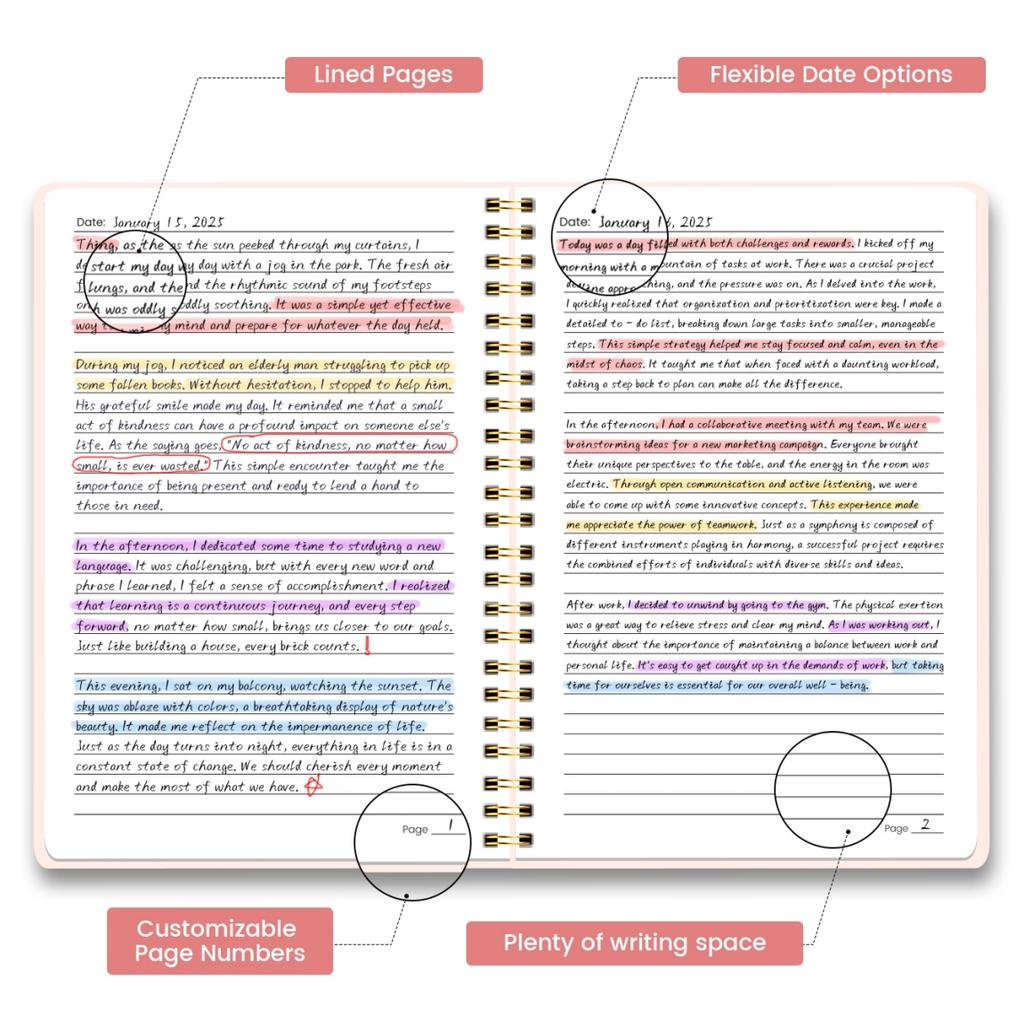 Lined Pages
Flexible Date Options
Date: January 15, 2025
Thing, as the as the sun peeked through my curtains, I
start my day my day with a jog in the park. The fresh air
lungs, and the and the rhythmic sound of my footsteps
was oddly oddly soothing. It was a simple yet effective
way my mind and prepare for whatever the day held.
During my jog, I noticed an elderly man struggling to pick up
some fallen books. Without hesitation, I stopped to help him.
His grateful smile made my day. It reminded me that a small
act of kindness can have a profound impact on someone else's
life. As the saying goes, "No act of kindness, no matter how
small, is ever wasted." This simple encounter taught me the
importance of being present and ready to lend a hand to
those in need.
In the afternoon, I dedicated some time to studying a new
language. It was challenging, but with every new word and
phrase I learned, I felt a sense of accomplishment. I realized
that learning is a continuous journey, and every step
forward, no matter how small, brings us closer to our goals.
Just like building a house, every brick counts. !
This evening, I sat on my balcony, watching the sunset. The
sky was ablaze with colors, a breathtaking display of nature's
beauty. It made me reflect on the impermanence of life.
Just as the day turns into night, everything in life is in a
constant state of change. We should cherish every moment
and make the most of what we have.
Page 1
Date: January 16, 2025
Today was a day filled with both challenges and rewards. I kicked off my
morning with a mountain of tasks at work. There was a crucial project
and the pressure was on. As I delved into the work,
I quickly realized that organization and prioritization were key. I made a
detailed to - do list, breaking down large tasks into smaller, manageable
steps. This simple strategy helped me stay focused and calm, even in the
midst of chaos. It taught me that when faced with a daunting workload,
taking a step back to plan can make all the difference.
In the afternoon, I had a collaborative meeting with my team. We were
brainstorming ideas for a new marketing campaign. Everyone brought
their unique perspectives to the table, and the energy in the room was
electric. Through open communication and active listening, we were
able to come up with some innovative concepts. This experience made
me appreciate the power of teamwork. Just as a symphony is composed of
different instruments playing in harmony, a successful project requires
the combined efforts of individuals with diverse skills and ideas.
After work, I decided to unwind by going to the gym. The physical exertion
was a great way to relieve stress and clear my mind. As I was working out, I
thought about the importance of maintaining a balance between work and
personal life. It's easy to get caught up in the demands of work, but taking
time for ourselves is essential for our overall well - being.
Page 2
Customizable
Page Numbers
Plenty of writing space